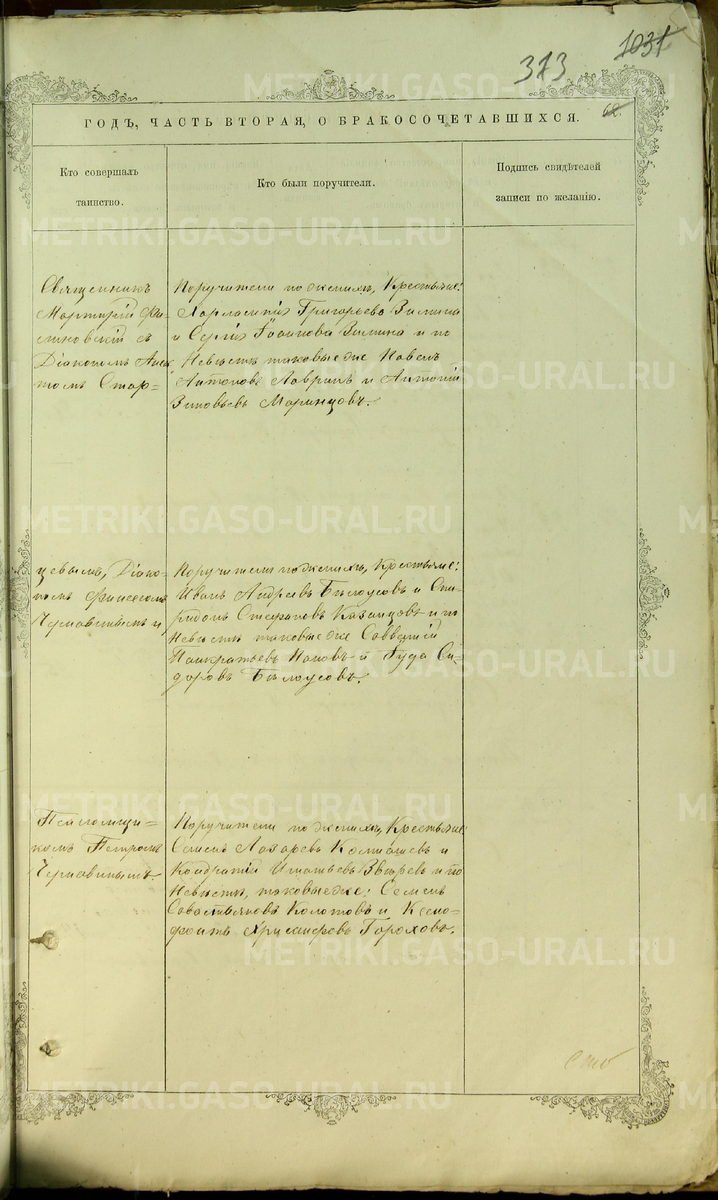 1031
313
62.
ГОДЪ, ЧАСТЬ ВТОРАЯ, О БРАКОСОЧЕТАВШИХСЯ.
Кто совершалъ
таинство.
Кто были поручители.
Подпись свидѣтелей
записи по желанію.
Священникъ
Мартирій
съ
Діакономъ
томъ Стар-
Поручители по женихѣ, Крестьяне:
Харлампій Григорьевъ Зимина
и Сергій Іоанновъ Зимина и по
Невѣстѣ таковые же Павелъ
Антоновъ Лавринъ и Антоній
Зиновьевъ Маринцовъ.
цевымъ, Діако-
номъ Финеесомъ
Чернавинымъ и
Поручители по женихѣ, Крестьяне:
Иванъ Андреевъ Бѣлоусовъ и Спи-
ридонъ Стефановъ Казанцовъ и по
Невѣстѣ таковые же Савватій
Панкратьевъ Поповъ и Іуда Си-
доровъ Бѣлоусовъ.
Псаломщи-
комъ Петромъ
Чернавинымъ
Поручители по женихѣ, Крестьяне:
Лазаревъ и
Кондратій Игнатьевъ Звѣревъ и по
Невѣстѣ, таковые же: Семенъ
Савастьяновъ Колотовъ и Ксено-
фонтъ Гороховъ.
METRIKI.GASO-URAL.RU